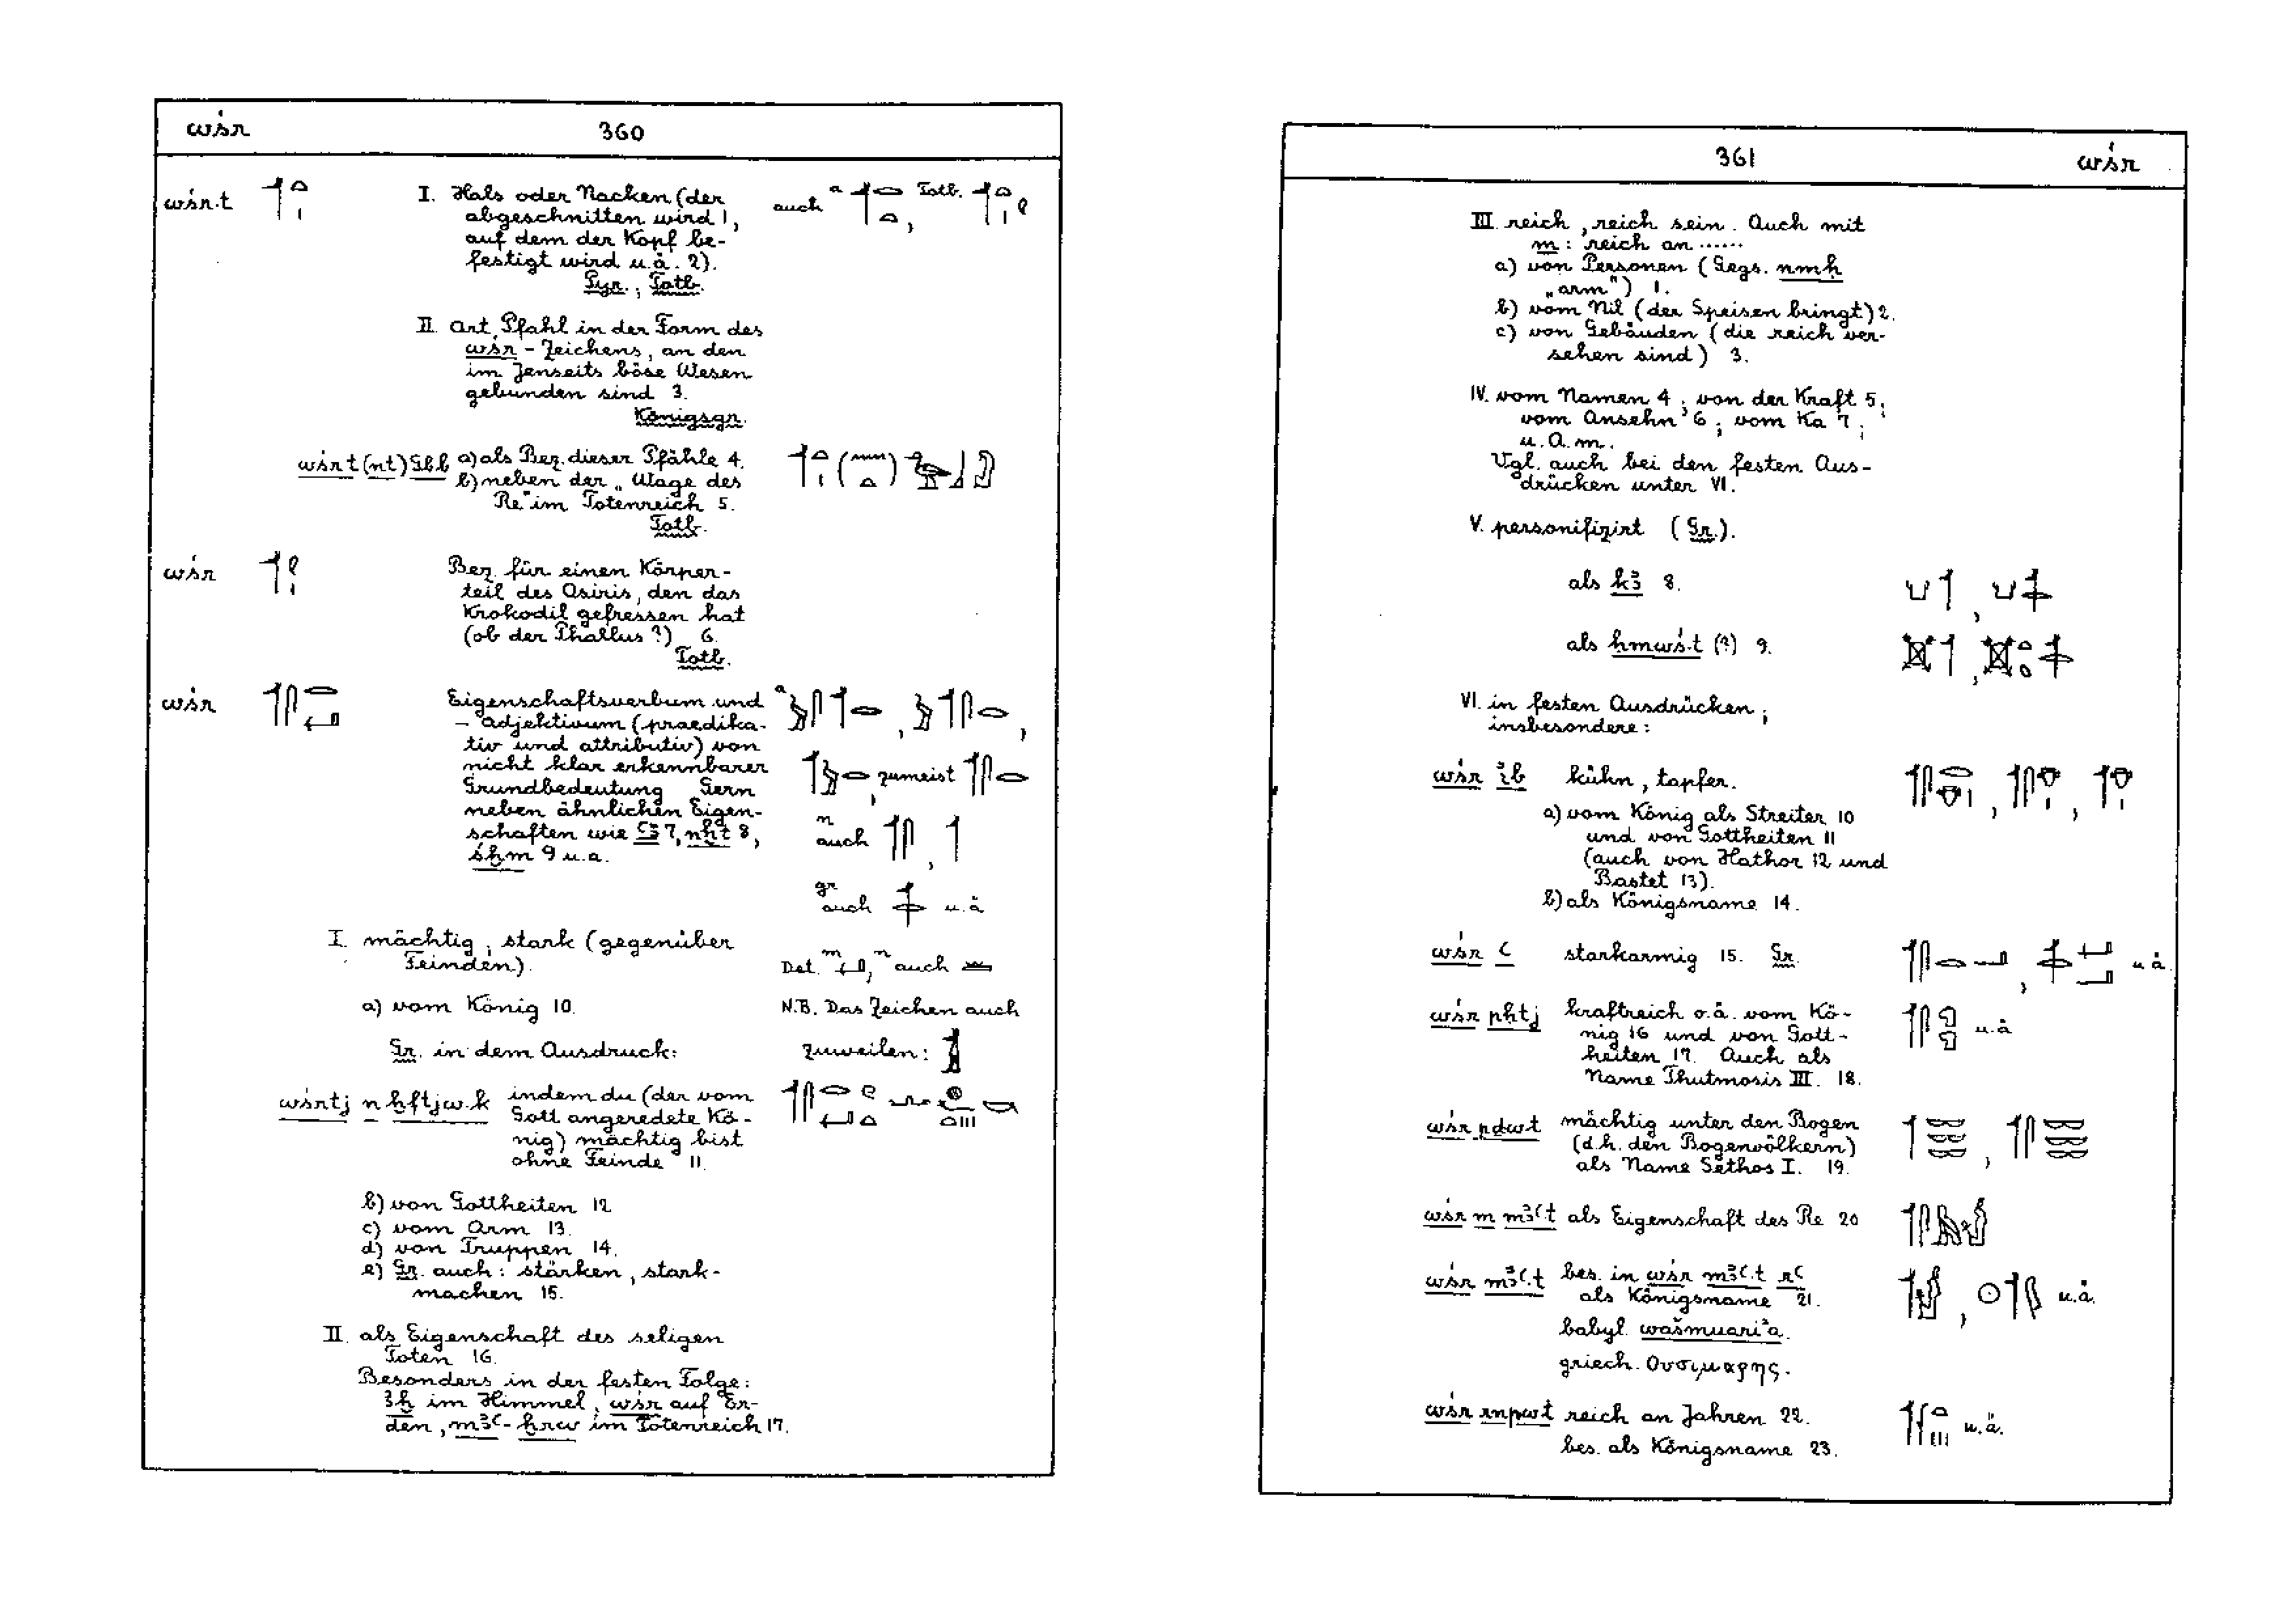 wśr 360
wśr.t I. Hals oder Nacken (der auch a , Totb.
abgeschnitten wird 1,
auf dem der Kopf be-
festigt wird u.ä. 2).
Pyr.; Totb.
II. Art Pfahl in der Form des
wśr-Zeichens, an den
im Jenseits böse Wesen
gebunden sind 3.
Königsgr.
wśrt (nt) Gbb a) als Bez. dieser Pfähle 4.
b) neben der „Wage des
Re" im Totenreich 5.
Totb.
wśr Bez. für einen Körper-
teil des Osiris, den das
Krokodil gefressen hat
(ob der Phallus?) 6.
Totb.
wśr Eigenschaftsverbum und a
-adjektivum (praedika-
tiv und attributiv) von
nicht klar erkennbarer zumeist
Grundbedeutung Gern
neben ähnlichen Eigen- n
schaften wie ꜥꜣ 7, nḫt 8, auch
śḫm 9 u.a.
gr auch u.ä
I. mächtig, stark (gegenüber
Feinden). Det. m , n auch
a) vom König 10. N.B. Das Zeichen auch
Gr. in dem Ausdruck: zuweilen:
wśrtj n ḫftjw.k indem du (der vom
Gott angeredete Kö-
nig) mächtig bist
ohne Feinde 11.
b) von Gottheiten 12
c) vom Arm 13.
d) von Truppen 14.
e) Gr. auch: stärken, stark-
machen 15.
II. als Eigenschaft des seligen
Toten 16.
Besonders in der festen Folge:
ꜣḫ im Himmel, wśr auf Er-
den, mꜣꜥ-ḫrw im Totenreich 17.
361 wśr
III. reich, reich sein. Auch mit
m: reich an ......
a) von Personen (Gegs. nmḥ
„arm") 1.
b) vom Nil (der Speisen bringt) 2.
c) von Gebäuden (die reich ver-
sehen sind) 3.
IV. vom Namen 4; von der Kraft 5;
vom Ansehn 6; vom Ka 7;
u.A.m.
Vgl. auch bei den festen Aus-
drücken unter VI.
V. personifizirt (Gr.).
als kꜣ 8.
als ḥmwś.t (?) 9.
VI. in festen Ausdrücken;
insbesondere:
wśr ἰb kühn, tapfer.
a) vom König als Streiter 10
und von Gottheiten 11
(auch von Hathor 12 und
Bastet 13).
b) als Königsname 14.
wśr ꜥ starkarmig 15. Gr. u.ä.
wśr pḥtj kraftreich o.ä. vom Kö- u.ä
nig 16 und von Gott-
heiten 17. Auch als
Name Thutmosis III. 18.
wśr pḏwt mächtig unter den Bogen
(d.h. den Bogenvölkern)
als Name Sethos I. 19.
wśr m mꜣꜥ.t als Eigenschaft des Re 20
wśr mꜣꜥ.t bes. in wśr mꜣꜥ.t rꜥ
als Königsname 21. u.ä.
babyl. wašmuariʾa.
griech. Ουσιμαρης.
wśr rnpwt reich an Jahren 22. u.ä.
bes. als Königsname 23.